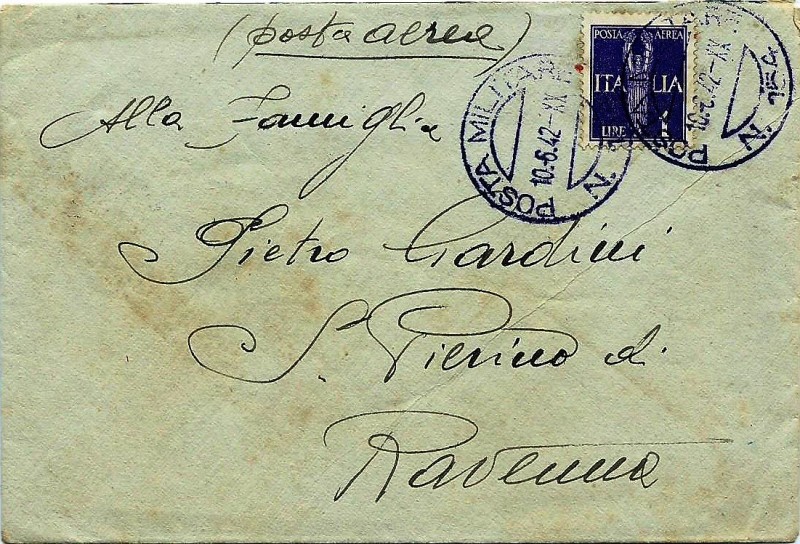 (posta aerea)
POSTA AEREA
ITALIA
LIRE 1
POSTA MILITARE N.
10.6.42-XX
POSTA MILITARE N.
10.6.42-XX
Alla Famiglia
Pietro Gardini
S. Pierino di
Ravenna